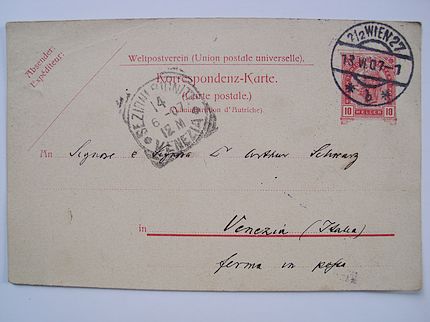 Absender:
Expéditeur:
Weltpostverein (Union postale universelle).
Korrespondenz-Karte.
(Carte postale.)
(Administration d'Autriche).
2/2 WIEN 27
13.VI.07-7
* b *
10 HELLER 10
SEZIONI RIUNITE
14
6-07
12 M
VENEZIA
An Signore e Signora Dr Arthur Schwarz
in Venezia (Italia)
ferma in posta